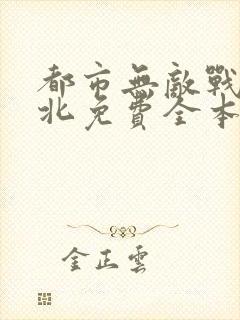 都市無敵戰
北免費全本
金正雲